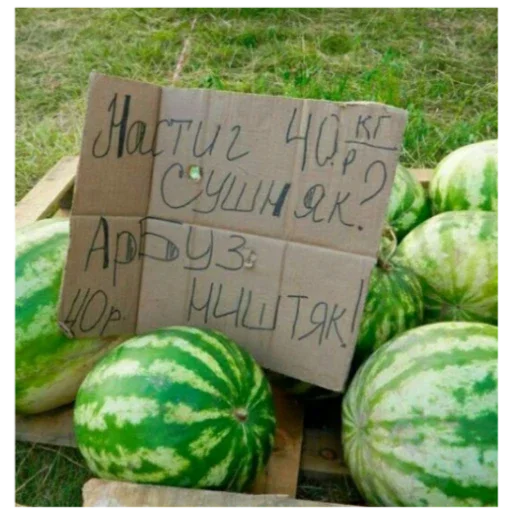 Настиг 40р кг
сушняк?
Арбуз
40р ништяк!